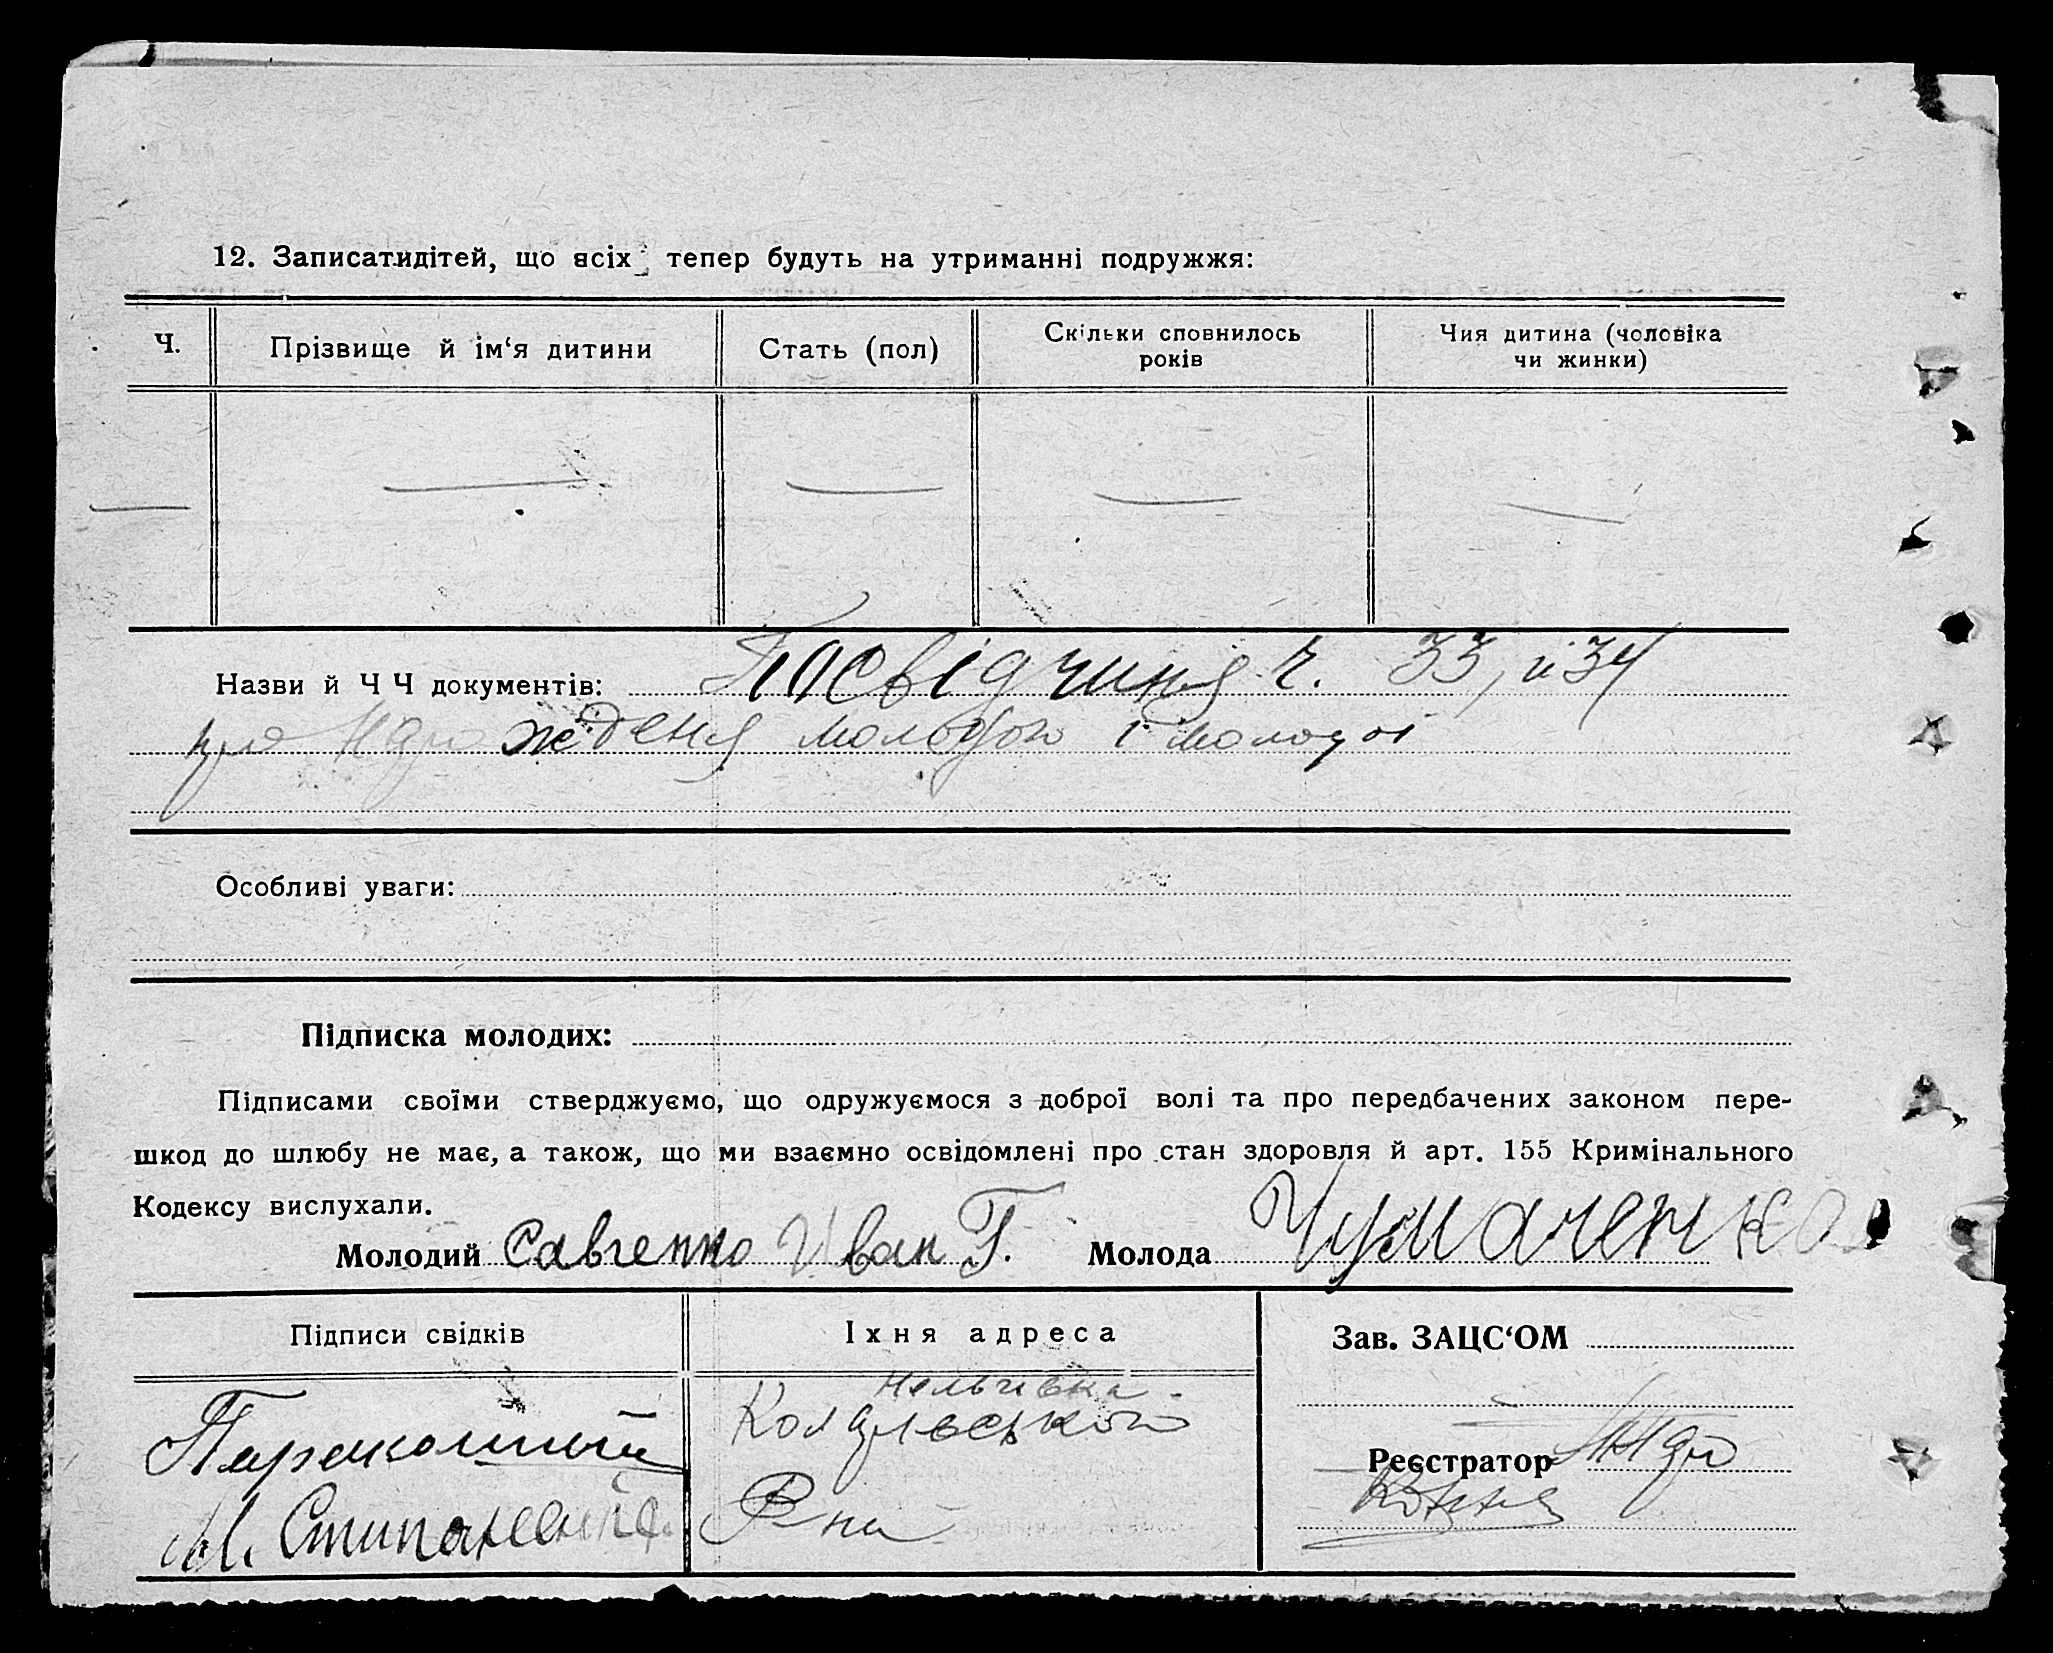 12. Записати дітей, що всіх тепер будуть на утриманні подружжя:
Ч.
Прізвище й ім‘я дитини
Стать (пол)
Скільки сповнилось
років
Чия дитина (чоловіка
чи жинки)
Назви й Ч Ч документів: Посвідчиня ч. 33, й 34
про народженя молодого і молодої
Особливі уваги:
Підписка молодих:
Підписами своїми стверджуємо, що одружуємося з доброї волі та про передбачених законом пере-
шкод до шлюбу не має, а також, що ми взаємно освідомлені про стан здоровля й арт. 155 Кримінального
Кодексу вислухали.
Молодий Савченко Иван Г. Молода Чумаченко
Підписи свідків
Їхня адреса
Зав. ЗАЦС‘ОМ
Реєстратор
М.